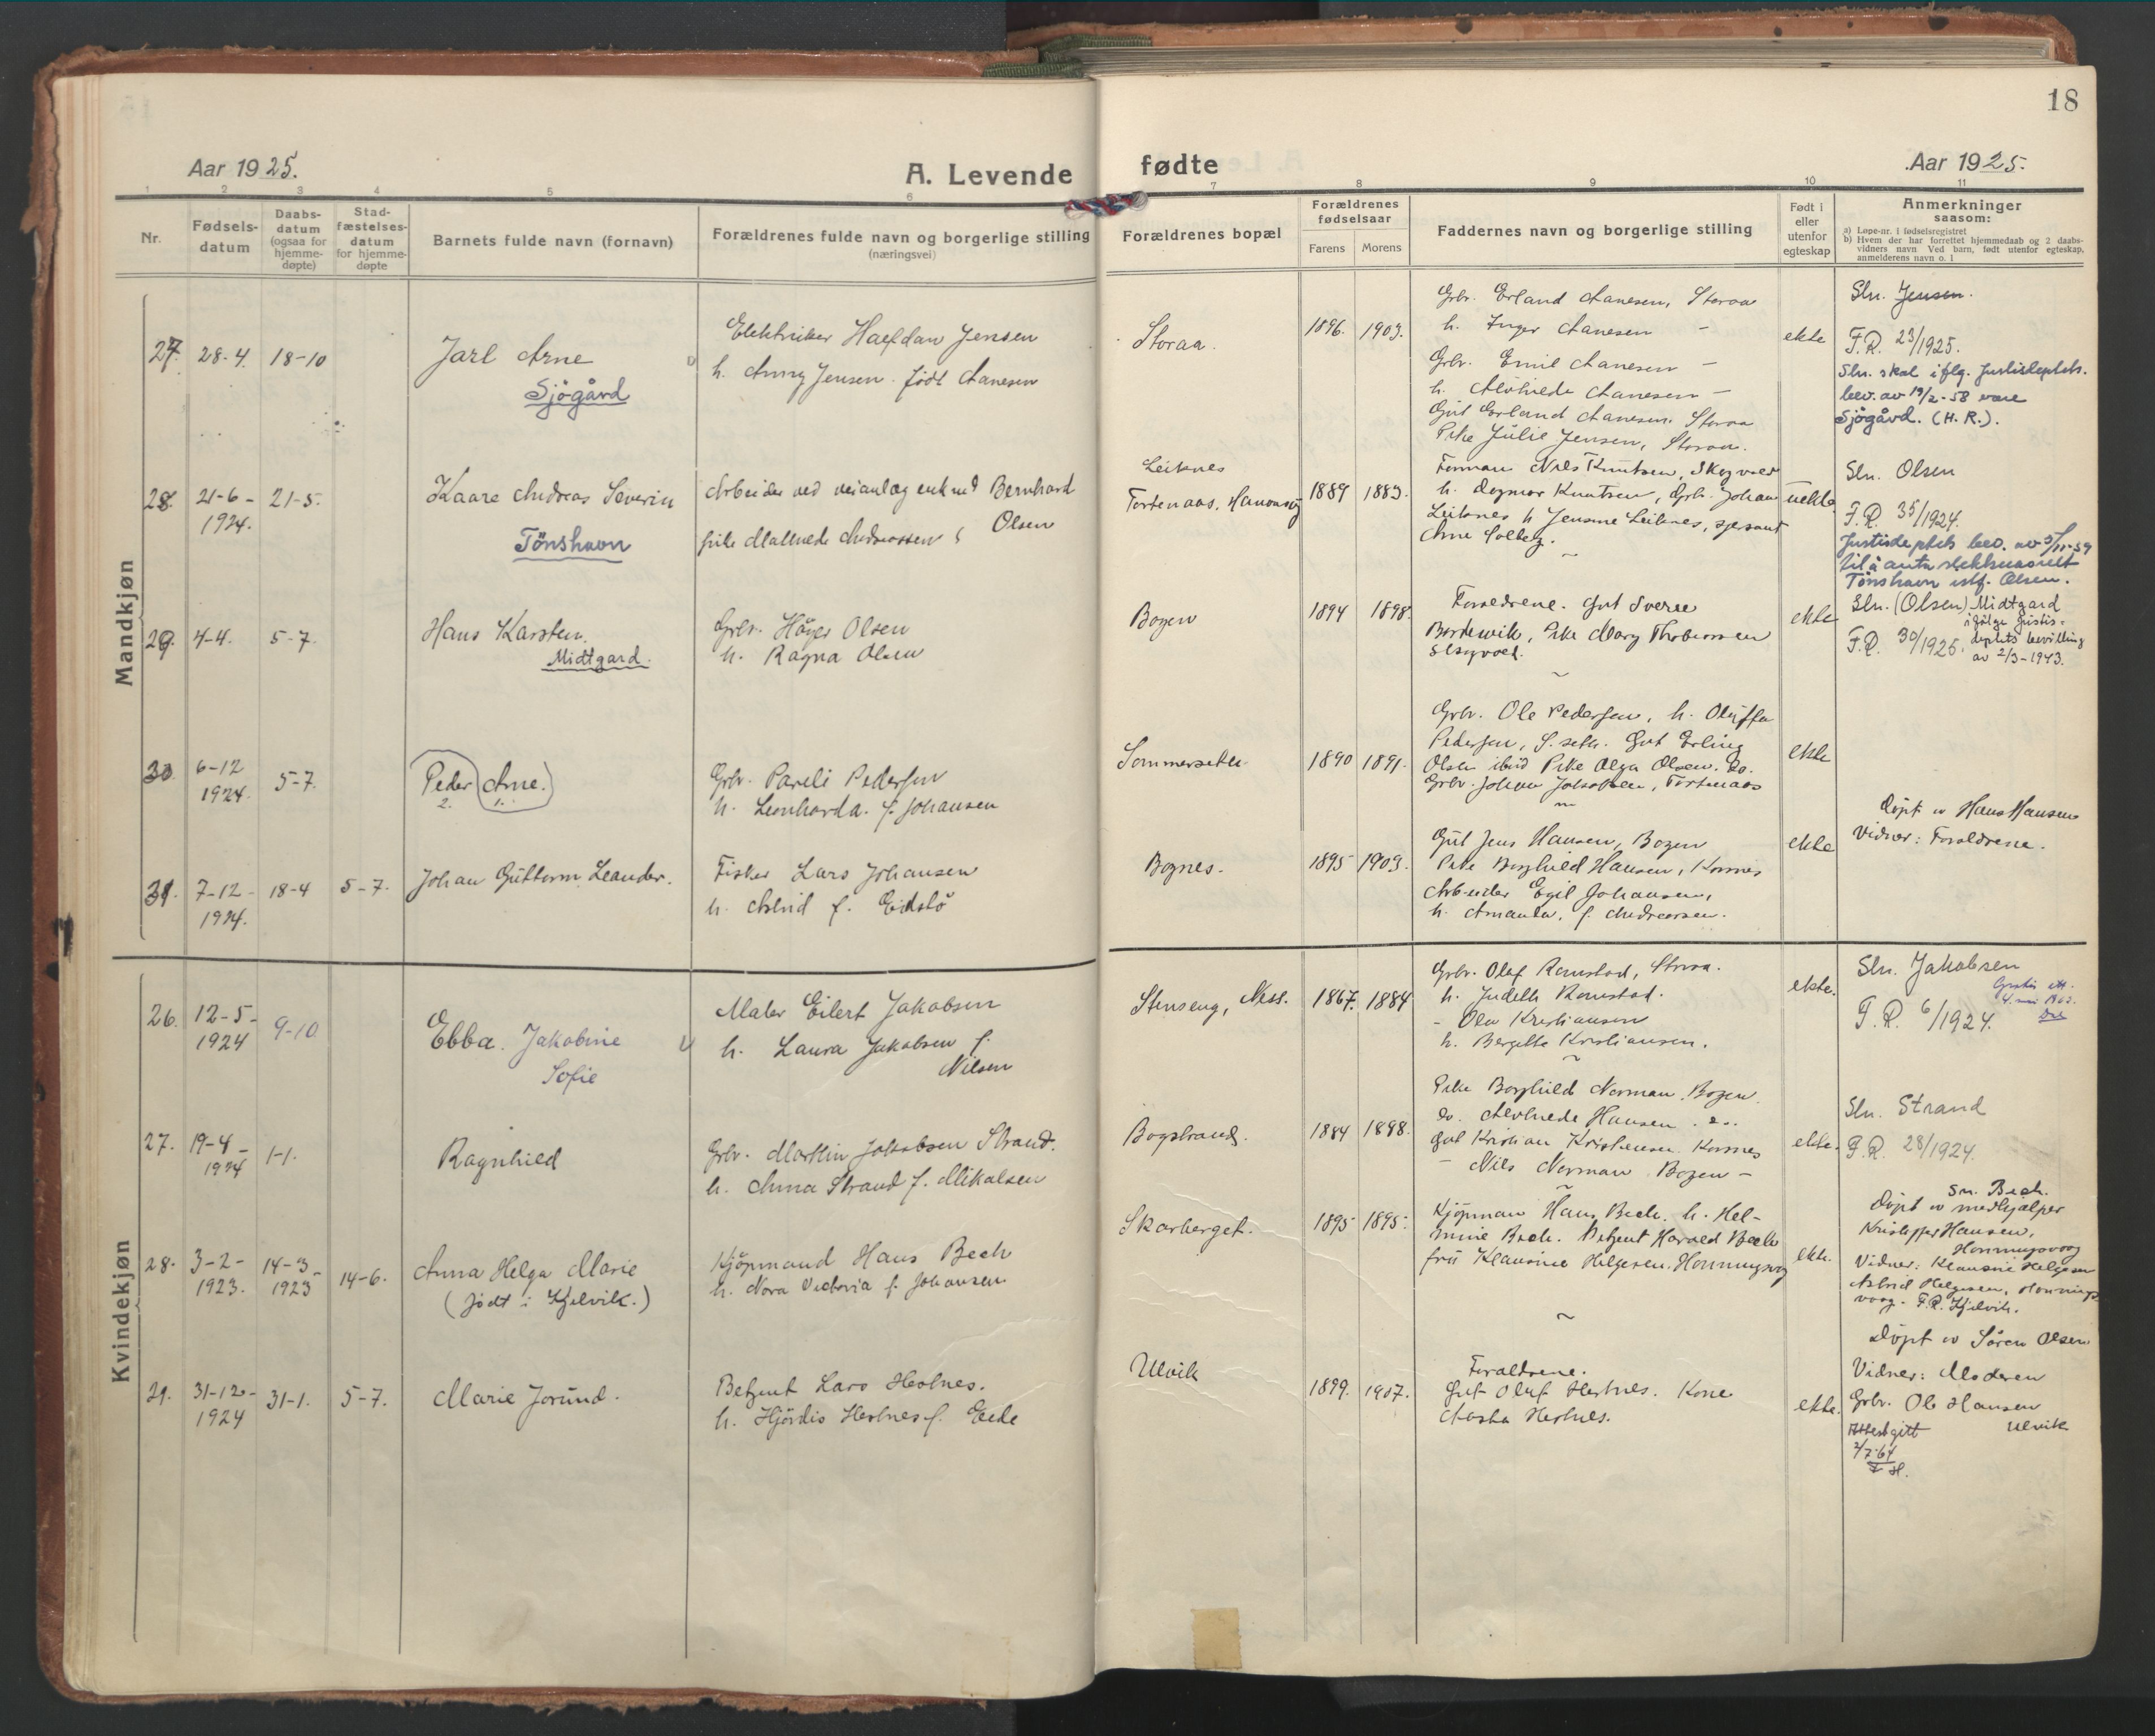 18
Aar 1925.
A. Levende
fødte
Aar 1925.
1 2 3 4 5 6 7 8 9 10 11
Nr.
Fødselsdatum
Daabsdatum (ogsaa for hjemmedøpte)
Stadfæstelsesdatum for hjemmedøpte
Barnets fulde navn (fornavn)
Forældrenes fulde navn og borgerlige stilling
(næringsvei)
Forældrenes bopæl
Forældrenes fødselsaar
Farens Morens
Faddernes navn og borgerlige stilling
Født i eller utenfor egteskap
Anmerkninger
saasom:
a) Løpe-nr. i fødselsregistret
b) Hvem der har forrettet hjemmedaab og 2 daabsvidners navn Ved barn, født utenfor egteskap, anmelderens navn o. l
Mandkjøn
27. 28-4. 18-10
Jarl Arne
Sjøgård
Elektriker Halfdan Jensen
h. Anny Jensen. født Aanesen
Storaa.
1896. 1903.
Grbr. Erland Aanesen, Storaa
h. Inger Aanesen -
Grbr. Emil Aanesen -
h. Alvhilde Aanesen -
Gut Erland Aanesen. Storaa
Pike Julie Jensen, Storaa.
ekte
Sln. Jensen.
F.R. 23/1925.
Sln. skal iflg. Justisdeptets.
bev. av 19/2-58 være
Sjøgård. (H. R.).
28. 21-6-1924. 21-5.
Kaare Andreas Severin
Tönshavn
Arbeider ved veianlæg enkem. Bernhard
Olsen
pike Mathilde Andreassen
Leiknes
Tortenaas, Hamarøy
1889 1883.
Forman Nils Knutsen, Skogvold
h. Dagmar Knutsen, Grb. Johan
Leiknes h Jensine Leiknes, sersjant
Arne Solberg.
uekte
Sln. Olsen
F.R. 35/1924.
Justisdeptets bev. av 5/11-59
til å anta slektsnavnet
Tönshavn istf. Olsen.
29. 4-4. 5-7.
Hans Karsten.
Midtgard.
Grbr. Höger Olsen
h. Ragna Olsen
Bogen
1894 1898.
Forældrene. Gut Sverre
Bordevik, Pike Mary Thobiassen
Skogvoll.
ekte
Sln. (Olsen) Midtgard
ifølge Justisdeptets bevilling
av 2/3-1943.
F.R. 30/1925.
30. 6-12 1924. 5-7.
Peder Arne.
2. 1.
Grbr. Pareli Pedersen
h. Leonharda. f. Johansen
Sommersette.
1890 1891.
Grbr. Ole Pedersen, h. Oluffa
Pedersen, S.seth. Gut Erling
Olsen ibid Pike Olga Olsen. do.
Grbr. Johan Jakobsen, Tortenaas
ekte
31. 7-12-1924. 18-4 5-7.
Johan Guttorm Leander.
Fisker Lars Johansen
h. Astrid f. Eidslö
Bognes.
1895 1903.
Gut Jens Hansen, Bogen
Pike Borghild Hansen, Korsnes
Arbeider Egil Johansen,
h. Amanda, f. Andreassen.
ekte
Døpt av Hans Hansen
Vidner: Forældrene.
Kvindekjøn
26. 12-5-1924 9-10
Ebba. Jakobine
Sofie
Maler Eilert Jakobsen
h. Laura Jakobsen f.
Nilsen
Stenseng, Ness.
1867. 1884
Grbr. Olaf Ramstad, Storaa.
h. Judith Ramstad.
- Ola Kristiansen
h. Bergitte Kristiansen.
ekte.
Sln. Jakobsen
F.R. 6/1924.
27. 19-4-1924 1-1.
Ragnhild
Grbr. Martin Jakobsen Strand.
h. Anna Strand f. Mikalsen
Bogstrand.
1884 1898.
Pike Borghild Norman. Bogen
do. Alvhilde Hansen. do.
Gut Kristian Kristensen Korsnes
- Nils Norman Bogen -
ekte.
Sln. Strand
F.R. 28/1924.
28. 3-2-1923. 14-3-1923 14-6.
Anna Helga Marie
(født i Kjelvik.)
Kjøpmand Hans Bech
h. Nora Victoria f. Johansen
Skarberget.
1895 1895.
Kjøpman Hans Bech. h. Helmine Bech. Betjent Harald Bech
fru Klausine Helgesen. Honningsvog
ekte.
Sn. Bech.
Døpt av medhjælper
Kristoffer Hansen,
Honningsvoog
Vidner: Klausine Helgesen
Astrid Helgesen, Honningsvoog. F.R. Kjelvik.
29. 31-12-1924 31-1. 5-7.
Marie Jorund.
Betjent Lars Hestnes.
h. Hjördis Hestnes f. Eide
Ulvik
1899. 1907.
Forældrene.
Gut Oluf Hestnes. Kone
Aasta Hestnes.
ekte.
Døpt av Sören Olsen
Vidner: Moderen
Grbr. Ole Hansen
Ulvik
Attest gitt
2/7-64